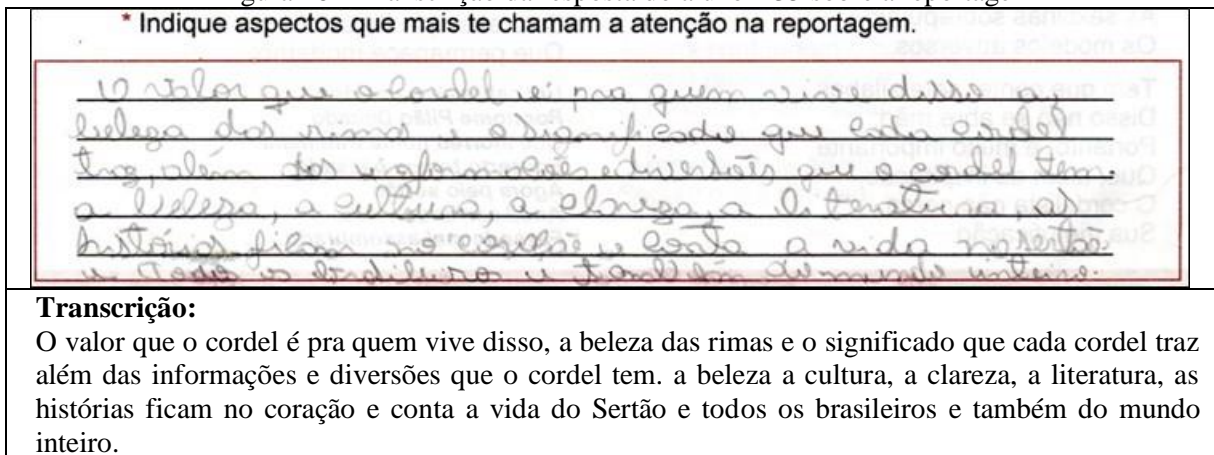 * Indique aspectos que mais te chamam a atenção na reportagem.
O valor que o cordel é pra quem vive disso a
beleza das rimas e o significado que cada cordel
traz, além das informações e diversões que o cordel tem.
a beleza, a cultura, a clareza, a literatura, as
histórias ficam no coração e conta a vida no sertão.
e todo o brasileiro e também do mundo inteiro.
Transcrição:
O valor que o cordel é pra quem vive disso, a beleza das rimas e o significado que cada cordel traz
além das informações e diversões que o cordel tem. a beleza a cultura, a clareza, a literatura, as
histórias ficam no coração e conta a vida do Sertão e todos os brasileiros e também do mundo
inteiro.